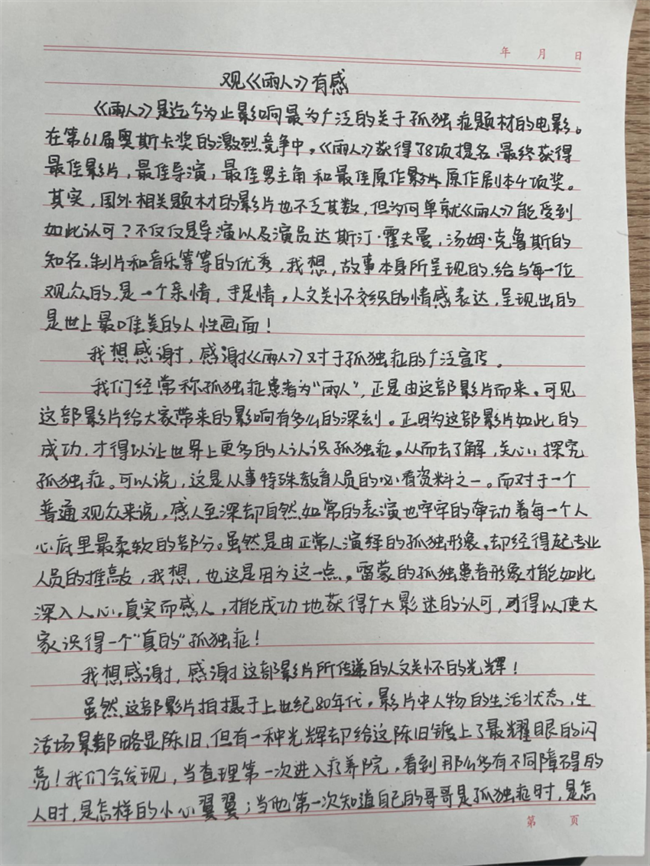 年 月 日
观《雨人》有感
《雨人》是迄今为止影响最为广泛的关于孤独症题材的电影。
在第61届奥斯卡奖的激烈竞争中。《雨人》获得了8项提名,最终获得
最佳影片,最佳导演,最佳男主角和最佳原作 原作剧本4项奖。
其实,国外相关题材的影片也不乏其数,但为何单就《雨人》能受到
如此认可?不仅仅是导演以及演员达斯汀·霍夫曼,汤姆·克鲁斯的
知名,制片和音乐等等的优秀,我想,故事本身所呈现的,给与每一位
观众的,是一个亲情,手足情,人文关怀交织的情感表达,呈现出的
是世上最唯美的人性画面!
我想感谢,感谢《雨人》对于孤独症的广泛宣传。
我们经常称孤独症患者为“雨人”,正是由这部影片而来。可见
这部影片给大家带来的影响有多么的深刻。正因为这部影片如此的
成功,才得以让世界上更多的人认识孤独症。从而去了解,关心,探究
孤独症。可以说,这是从事特殊教育人员的必看资料之一。而对于一个
普通观众来说,感人至深却自然如常的表演也牢牢的牵动着每一个人
心底里最柔软的部分。虽然是由正常人演绎的孤独形象,却经得起专业
人员的推敲,我想,也这是因为这一点。雷蒙的孤独患者形象才能如此
深入人心,真实而感人,才能成功地获得个大影迷的认可,得以使大
家识得一个“真的”孤独症!
我想感谢,感谢这部影片所传递的人文关怀的光辉!
虽然,这部影片拍摄于上世纪80年代,影片中人物的生活状态,生
活场景都略显陈旧,但有一种光辉却给这陈旧镀上了最耀眼的闪
亮!我们会发现,当查理第一次进入疗养院,看到那么多有不同障碍的
人时,是怎样的小心翼翼;当他第一次知道自己的哥哥是孤独症时,是怎
第 页